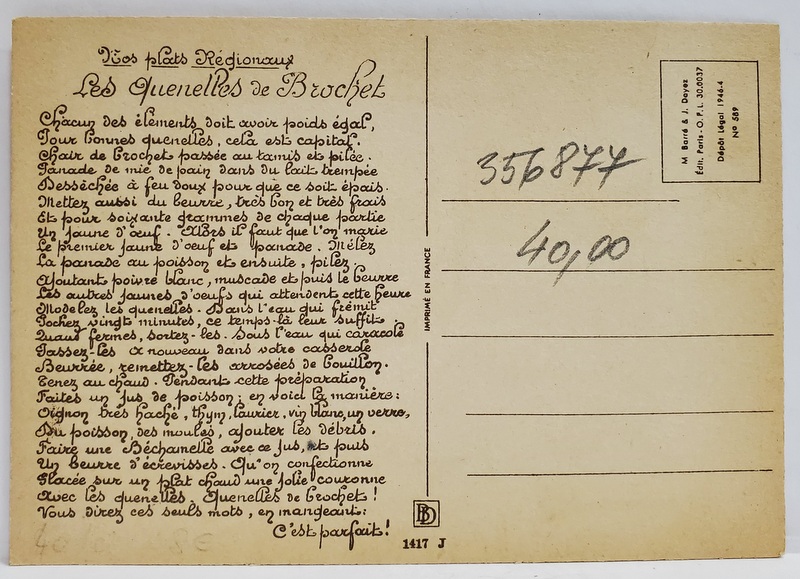 Nos plats Régionaux
Les Quenelles de Brochet
Chacun des éléments doit avoir poids égal,
Pour bonnes quenelles, cela est capital.
Chair de brochet passée au tamis et pilée.
Panade de mie de pain dans du lait trempée
Desséchée à feu doux pour que ce soit épais.
Mettez aussi du beurre, très bon et très frais
Et pour soixante grammes de chaque partie
Un jaune d'œuf. Alors il faut que l'on marie
Le premier jaune d'œuf et panade. Mélez
La panade au poisson et ensuite, pilez.
Ajoutant poivre blanc, muscade et puis le beurre
Les autres jaunes d'oeufs qui attendent cette heure
Modelez les quenelles. Dans l'eau qui frémit
Pochez vingt minutes, ce temps-là leur suffit.
Quand fermes, sortez-les. Sous l'eau qui caracole
Passez-les à nouveau dans votre casserole
Beurrée, remettez-les arrosées de bouillon.
Tenez au chaud. Pendant cette préparation
Faites un jus de poisson; en voici la manière:
Oignon très haché, thym, laurier, vin blanc, un verre,
Du poisson, des moules, ajouter les débris.
Faire une Béchamelle avec ce jus, et puis
Un beurre d'écrevisses. Qu'on confectionne
Placée sur un plat chaud une jolie couronne
Avec les quenelles. Quenelles de brochet!
Vous direz ces seuls mots, en mangeant:
C'est parfait!
IMPRIMÉ EN FRANCE
BD
1417 J
M Barré & J. Dayez
Édit. Paris - O.P.L. 30.0037
Dépôt Légal 1946-4
N° 589
356877
40,00